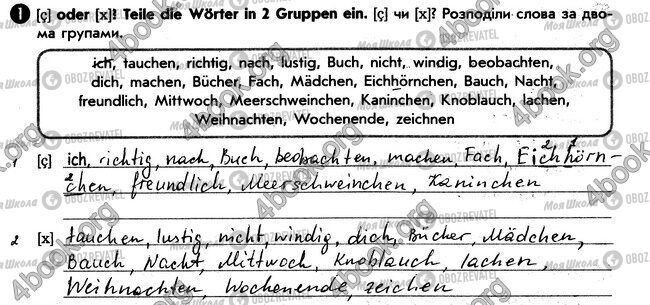 1 [ç] oder [x]? Teile die Wörter in 2 Gruppen ein. [ç] чи [x]? Розподіли слова за дво-
ма групами.
ich, tauchen, richtig, nach, lustig, Buch, nicht, windig, beobachten,
dich, machen, Bücher, Fach, Mädchen, Eichhörnchen, Bauch, Nacht,
freundlich, Mittwoch, Meerschweinchen, Kaninchen, Knoblauch, lachen,
Weihnachten, Wochenende, zeichnen
1 [ç] ich, richtig, nach, Buch, beobachten, machen, Fach, Eichhörn-
chen, freundlich, Meerschweinchen, Kaninchen
2 [x] tauchen, lustig, nicht, windig, dich, Bücher, Mädchen,
Bauch, Nacht, Mittwoch, Knoblauch, lachen,
Weihnachten, Wochenende, zeichen
4book.org
Моя Школа
OBOZREVATEL